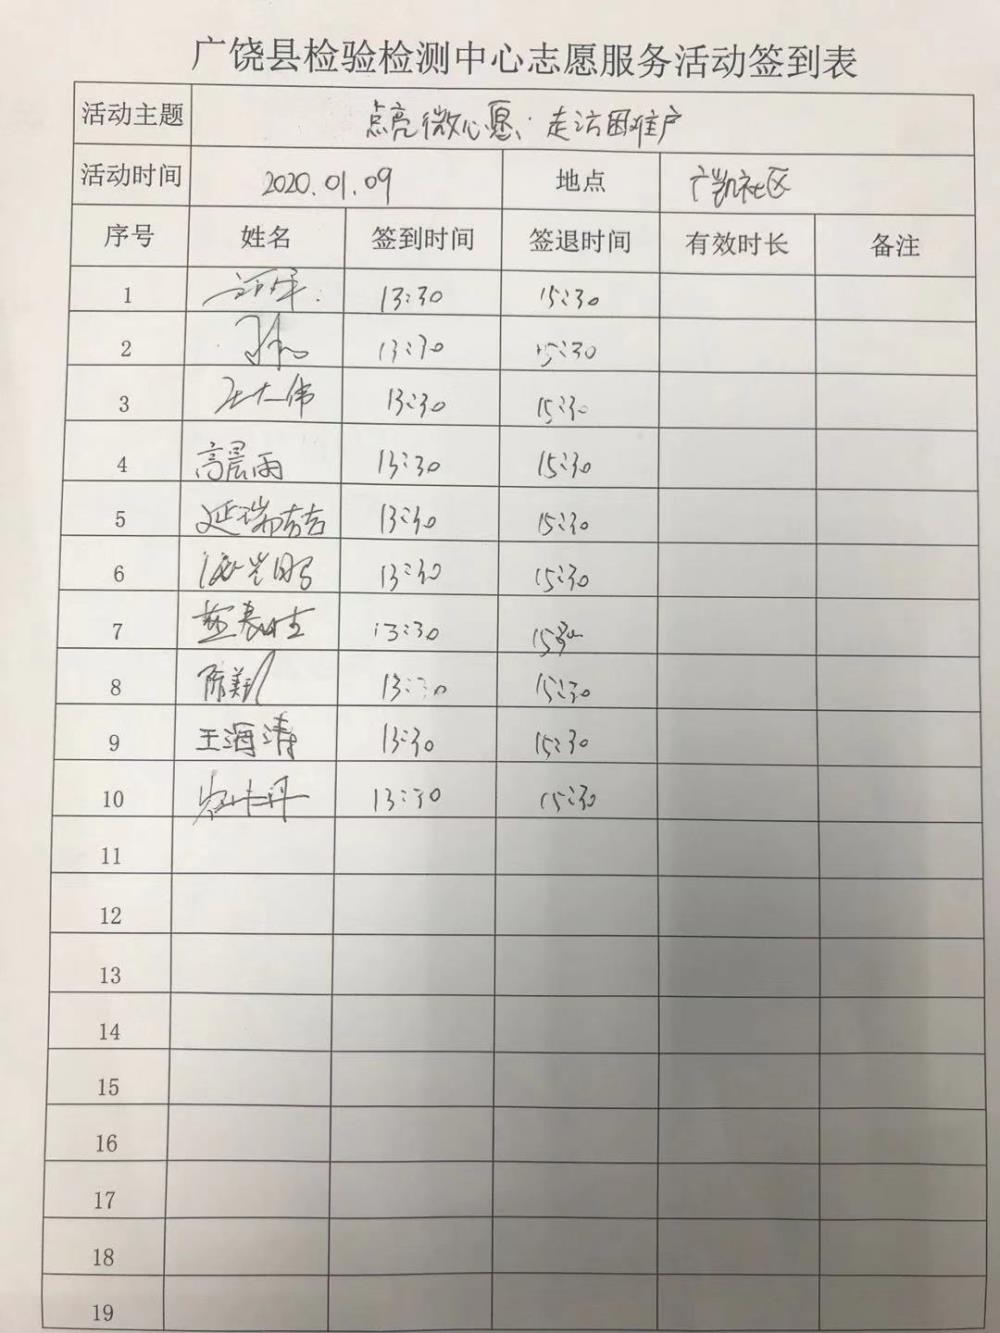 广饶县检验检测中心志愿服务活动签到表
活动主题 点亮微心愿、走访困难户
活动时间 2020.01.09 地点 广凯社区
序号 姓名 签到时间 签退时间 有效时长 备注
1 13:30 15:30
2 13:30 15:30
3 伟 13:30 15:30
4 高晨雨 13:30 15:30
5 延瑞吉吉 13:30 15:30
6 13:30 15:30
7 13:30 15:30
8 陈美 13:30 15:30
9 王海涛 13:30 15:30
10 丹 13:30 15:30
11
12
13
14
15
16
17
18
19